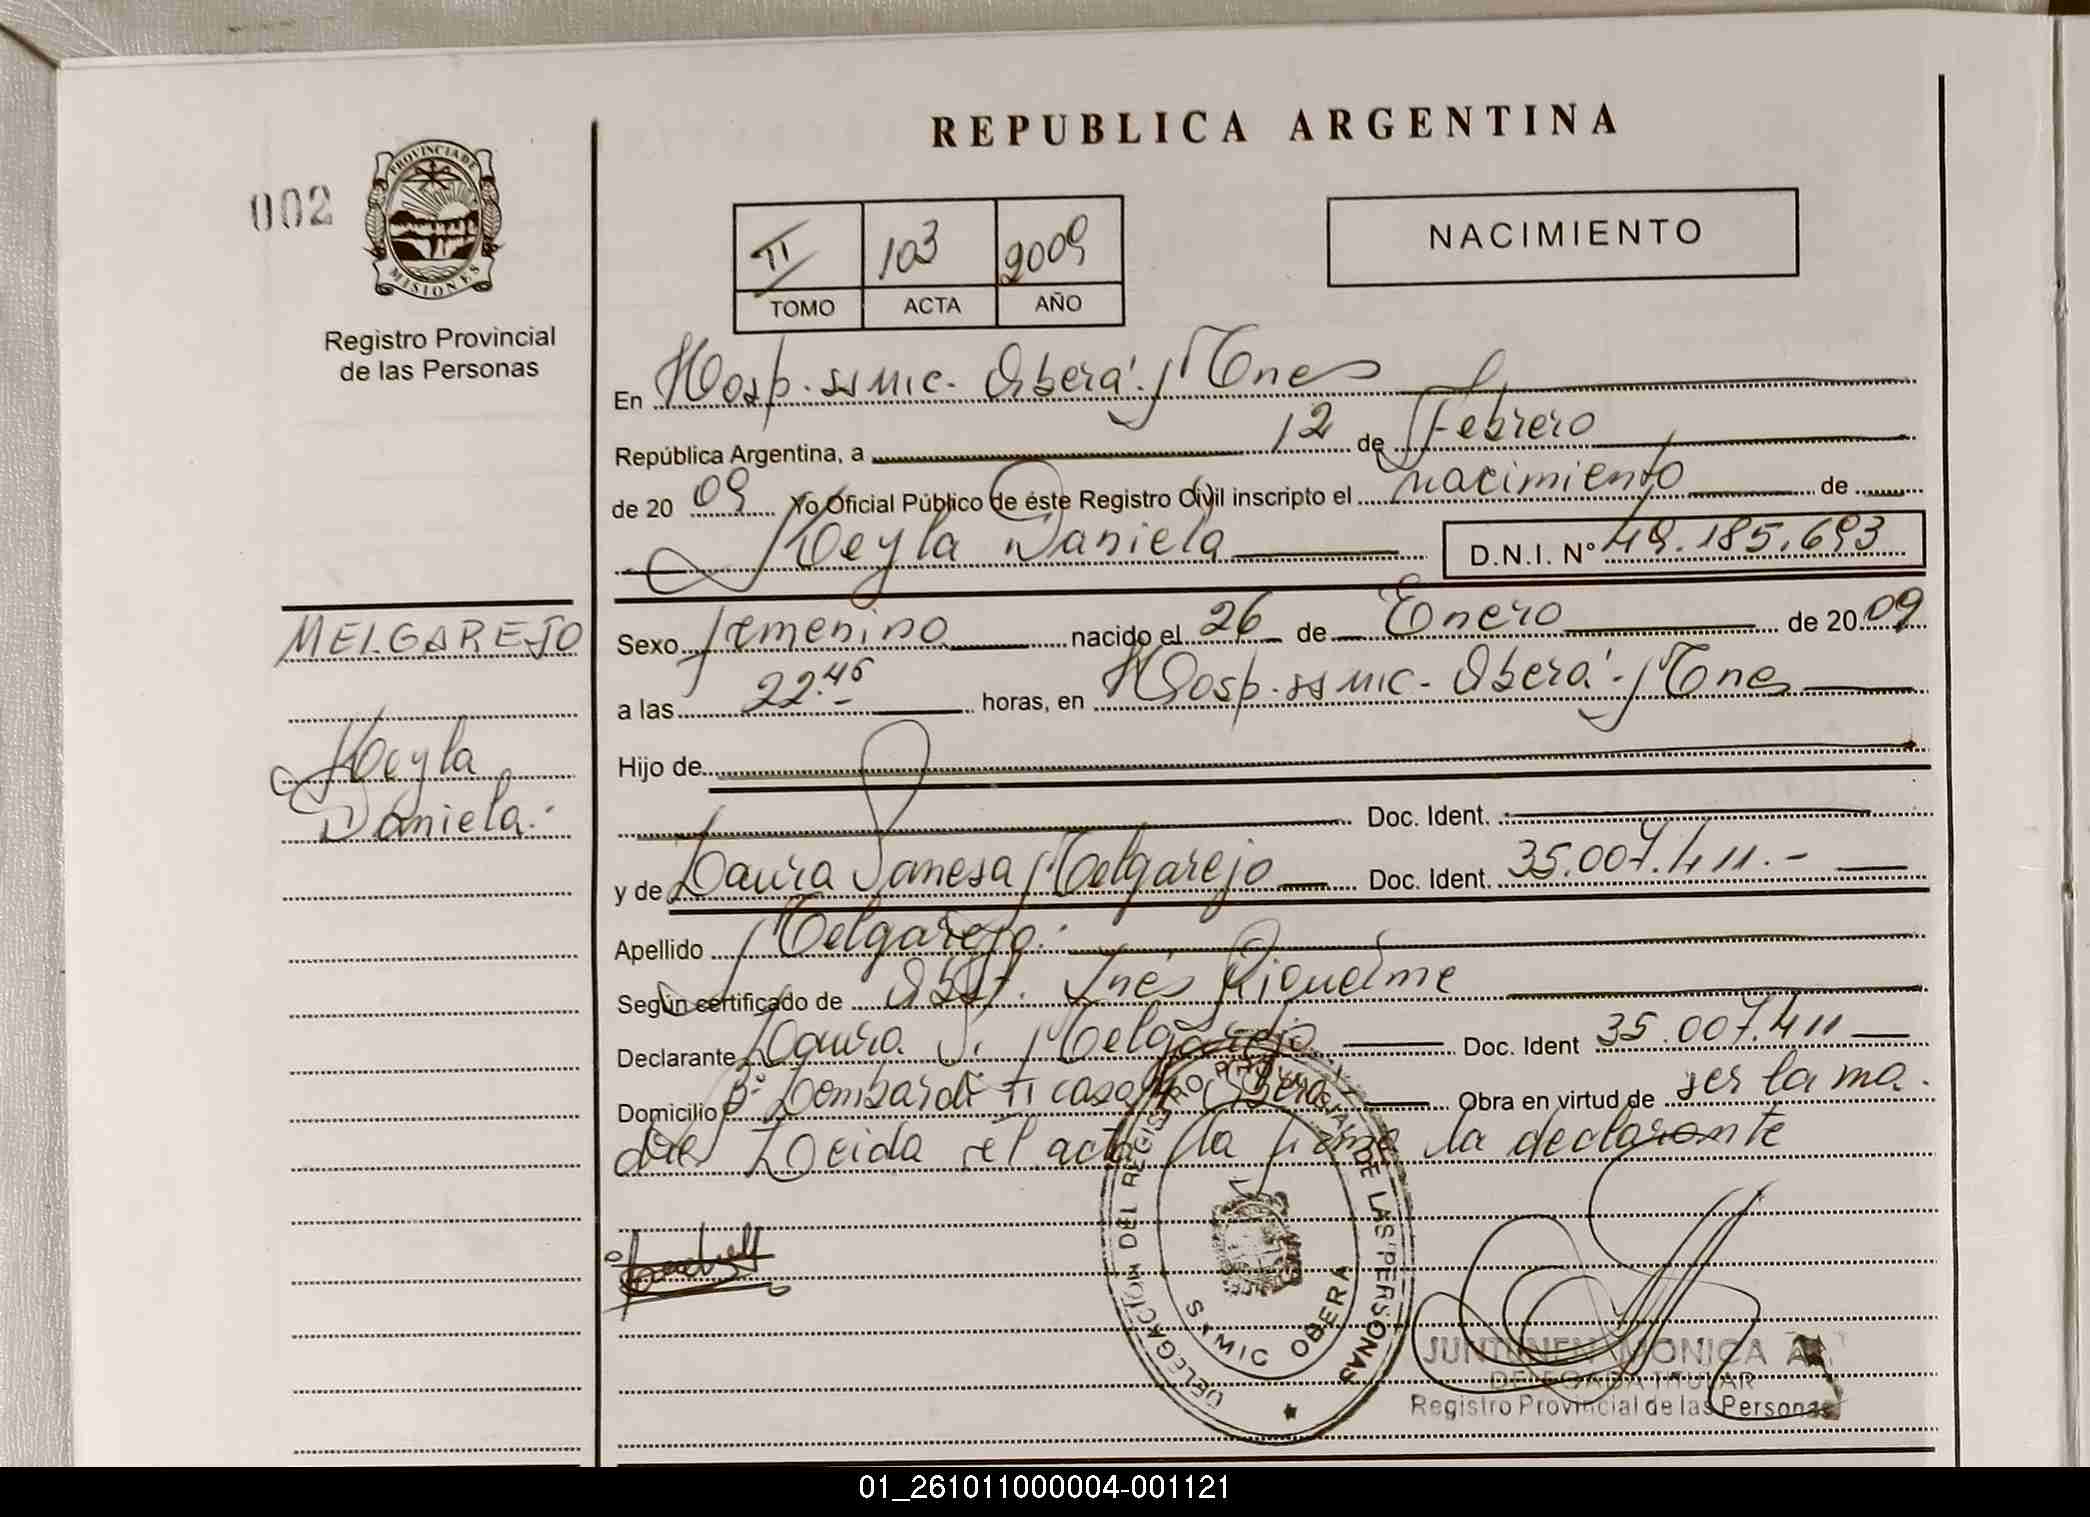 REPUBLICA ARGENTINA
002
PROVINCIA DE
MISIONES
Registro Provincial
de las Personas
TI 103 2009
TOMO ACTA AÑO
NACIMIENTO
En Hosp. ss mic. Oberá. Mnes
República Argentina, a 12 de Febrero
de 2009 Yo Oficial Público de éste Registro Civil inscripto el nacimiento de
Keyla Daniela D.N.I. Nº 49.185.693
MELGAREJO
Keyla
Daniela.
Sexo femenino nacido el 26 de Enero de 2009
a las 22.46 horas, en Hosp. ss mic. Oberá. Mnes
Hijo de
Doc. Ident.
y de Laura Vanesa Melgarejo Doc. Ident. 35.007.411.-
Apellido Melgarejo.
Según certificado de Obst. Inés Riquelme
Declarante Laura V. Melgarejo Doc. Ident 35.007.411
Domicilio Bº Lombardi TI casa Oberá Obra en virtud de ser la ma.
dre Leida el acta la firma la declarante
DELEGACION DEL REGISTRO PROVINCIAL DE LAS PERSONAS
SAMIC OBERA
JUNTUNEN MONICA A.
DELEGADA TITULAR
Registro Provincial de las Personas
01_261011000004-001121